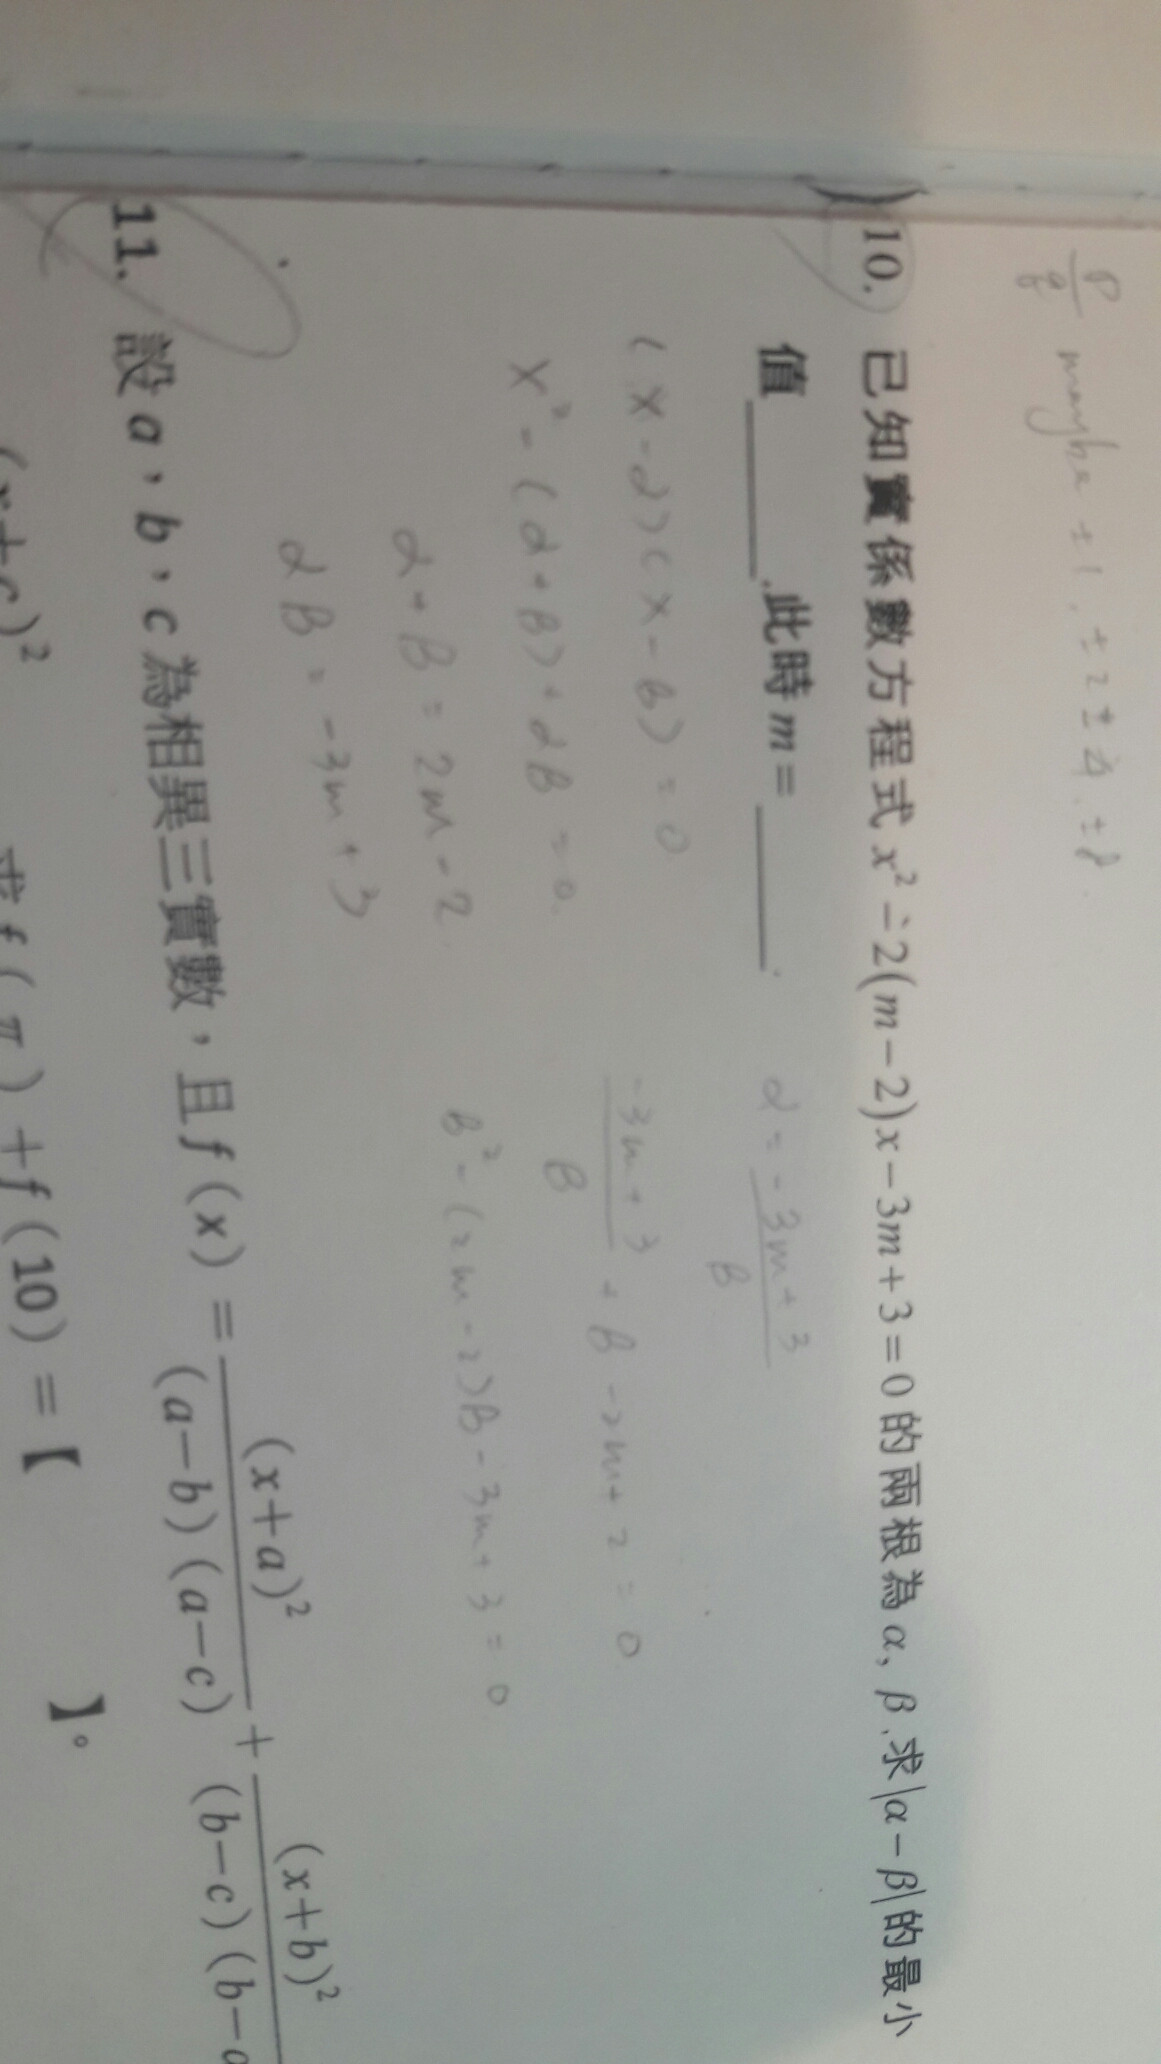 P/q maybe ±1, ±2 ±4, ±8
10. 已知實係數方程式 x²-2(m-2)x-3m+3=0 的兩根為 α, β, 求|α-β|的最小
值______,此時 m=______.
(x-α)(x-β)=0
x²-(α+β)+αβ=0.
α+β=2m-2
αβ=-3m+3
α=-3m+3/β
-3m+3/β+β-2m+2=0
β²-(2m-2)β-3m+3=0
11. 設 a,b,c 為相異三實數,且 f(x)=(x+a)²/(a-b)(a-c)+(x+b)²/(b-c)(b-
求 f(π)+f(10)=【 】。